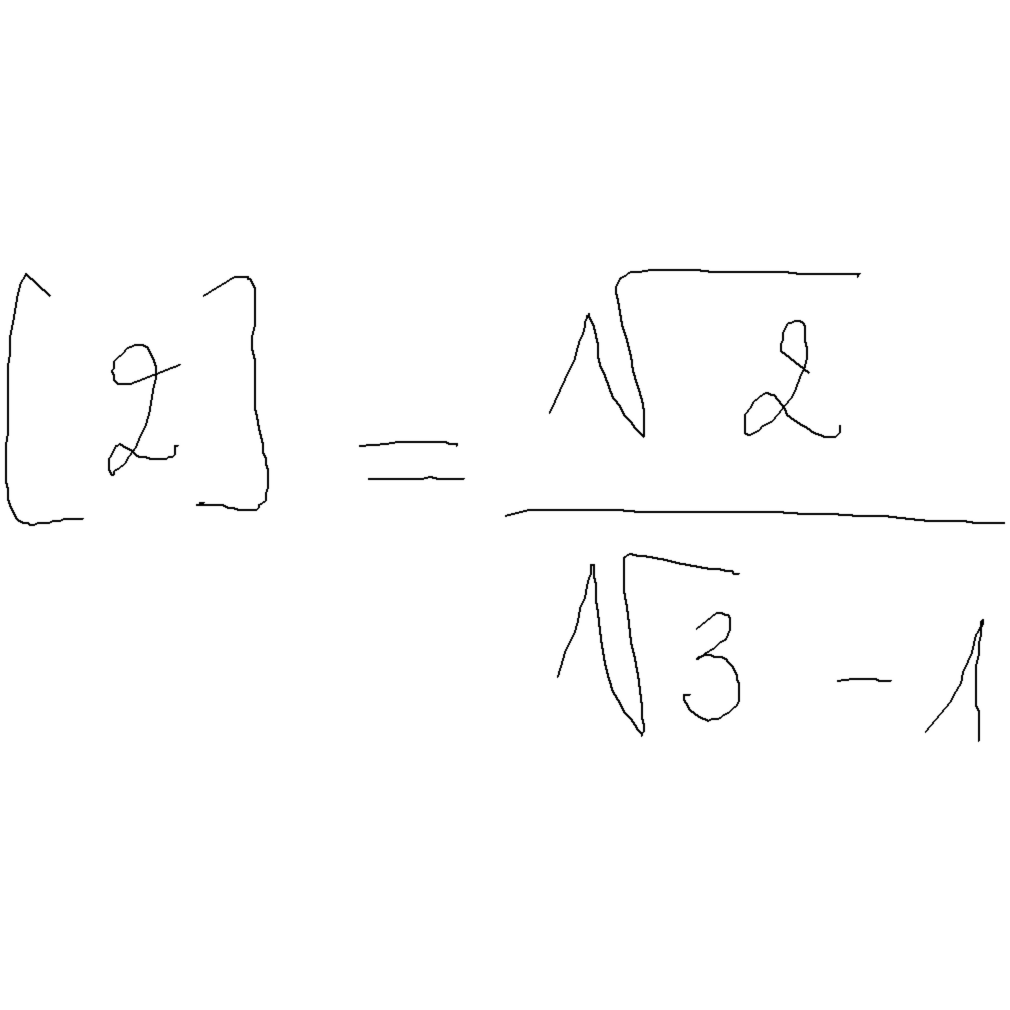 [2] = \frac{\sqrt{2}}{\sqrt{3} - 1}